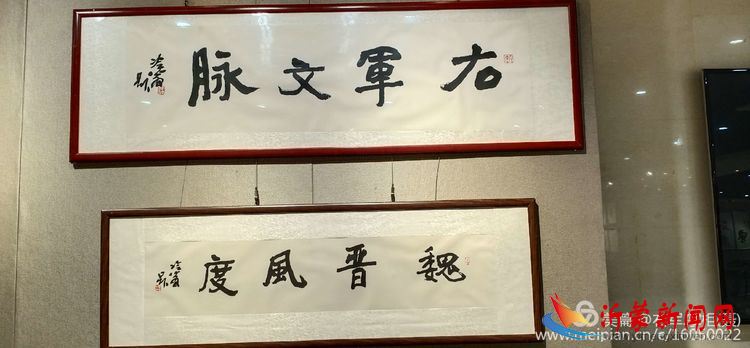 右軍文脉
魏晋風度
沂蒙新闻网
www.meipian.cn/c/16050022